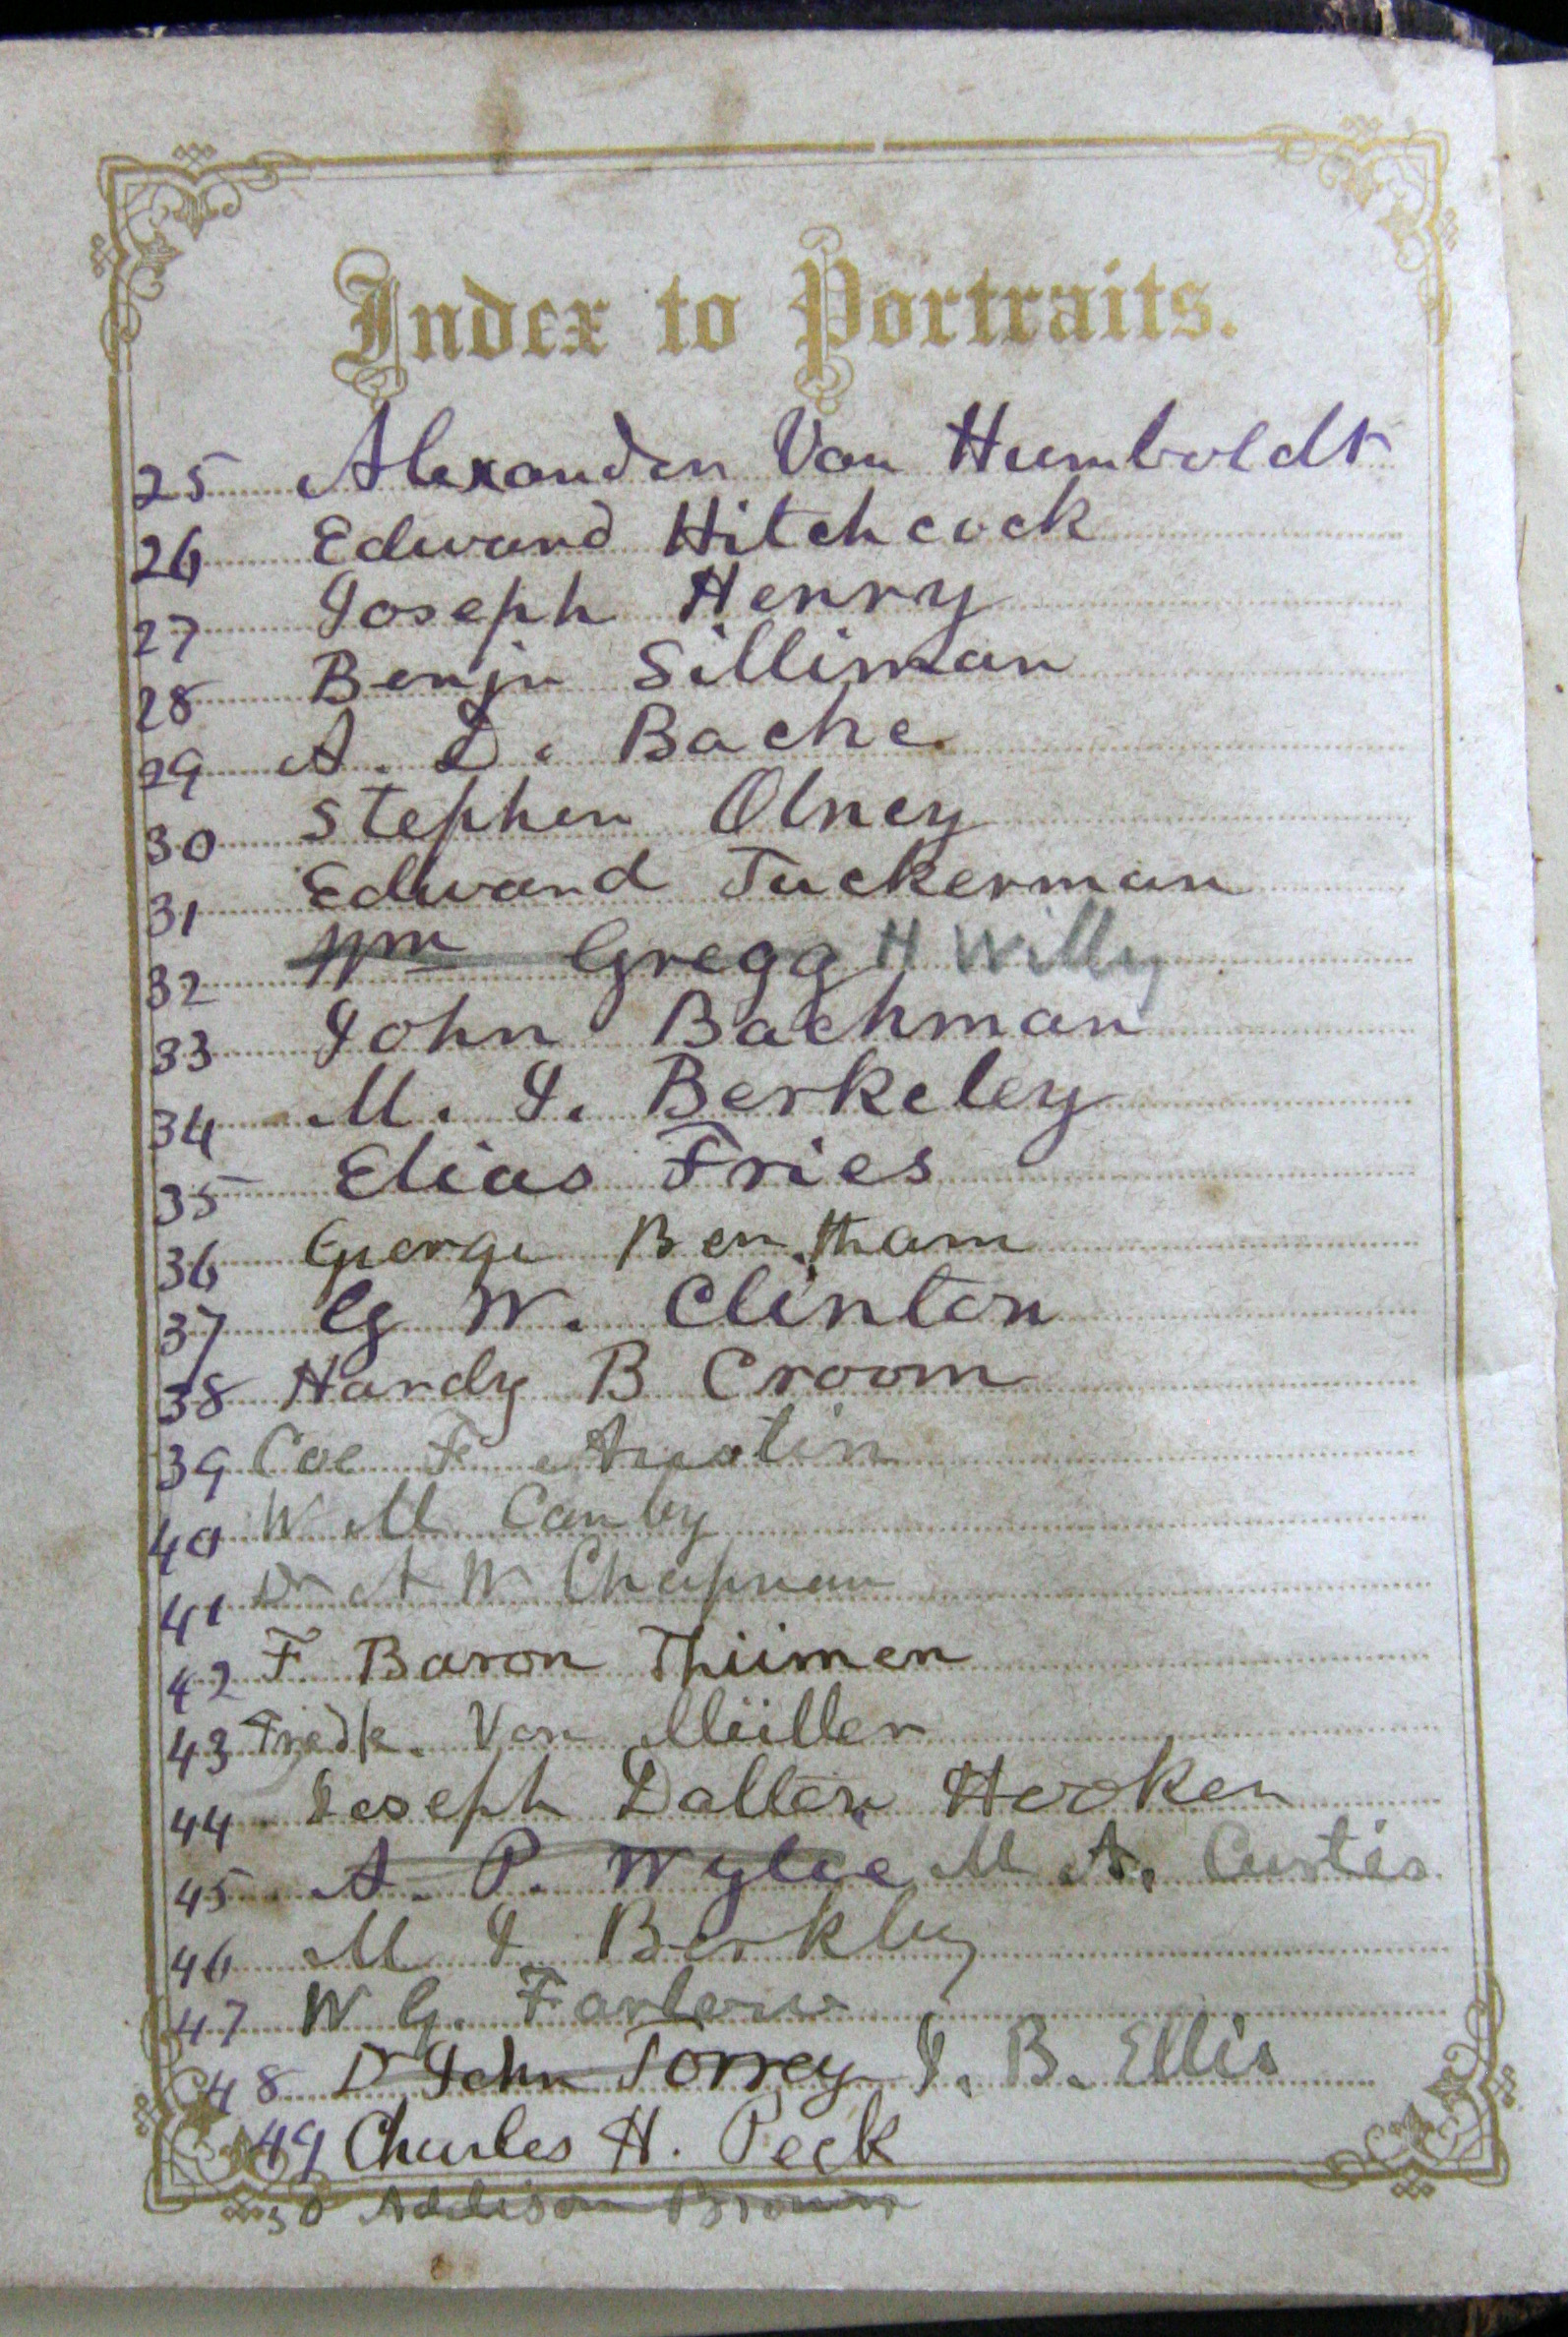 Index to Portraits.
25 Alexander Von Humboldt
26 Edward Hitchcock
27 Joseph Henry
28 Benjn Silliman
29 A. D. Bache
30 Stephen Olney
31 Edward Tuckerman
32 Wm Gregg H Willey
33 John Bachman
34 M. J. Berkeley
35 Elias Fries
36 George Bentham
37 G W. Clinton
38 Hardy B Croom
39 Coe F Austin
40 W M Canby
41 Dr A W Chapman
42 F Baron Thümen
43 Fredk. Von Müller
44 Joseph Dalton Hooker
45 A. P. Wylie M A. Curtis
46 M J Berkly
47 W G. Farlow
48 Dr John Torrey J. B. Ellis
49 Charles H. Peck
50 Addison Brown